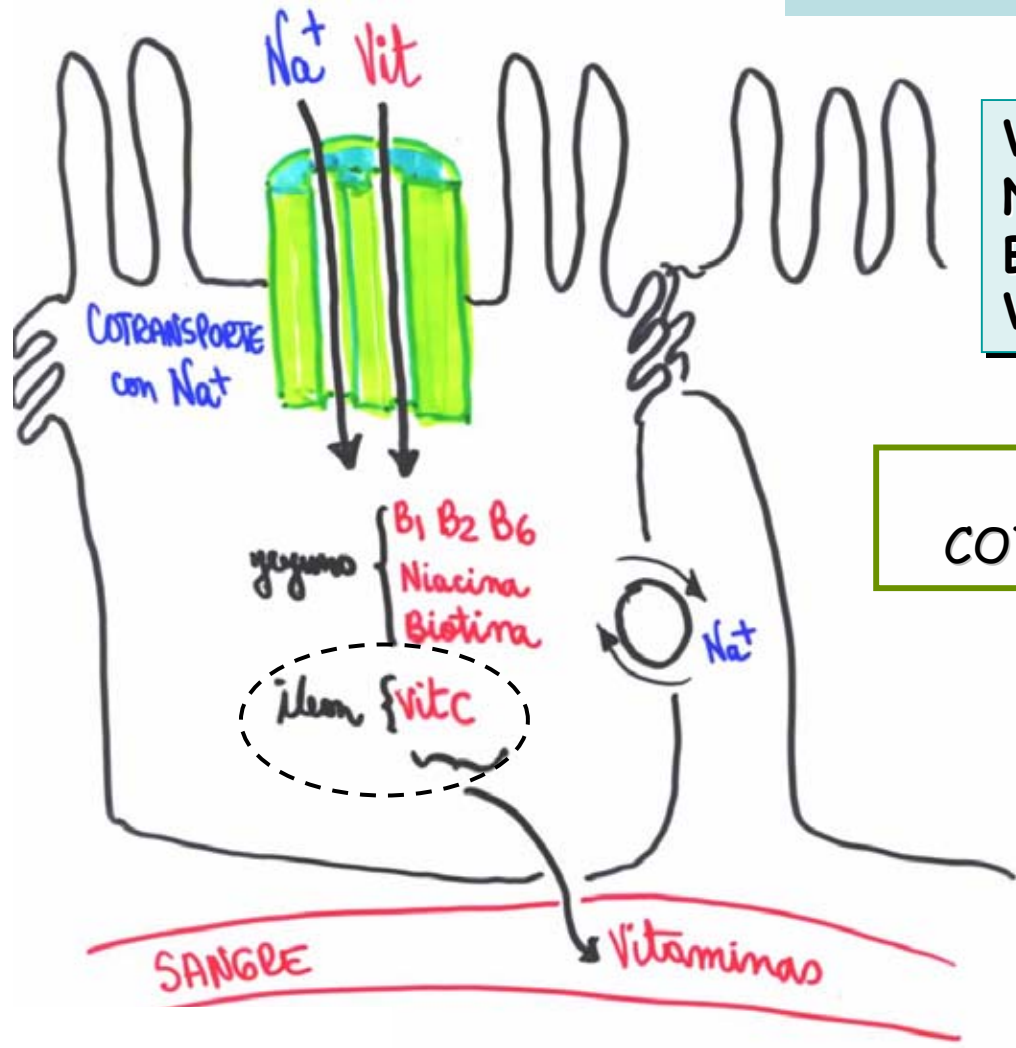 Na⁺ Vit
COTRANSPORTE
con Na⁺
yeyuno { B₁ B₂ B₆
Niacina
Biotina
íleon { Vit C
Na⁺
SANGRE
Vitaminas
V
N
B
V
COT